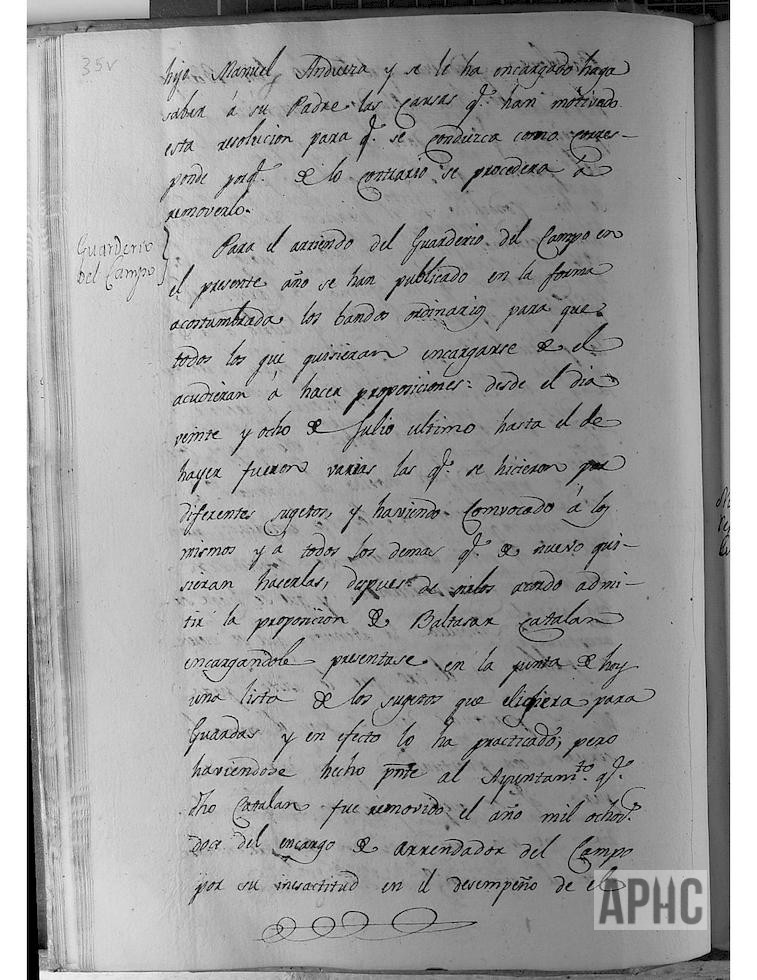 35v
hijo Manuel Andueza y se le ha encargado haga
saber á su Padre las Causas q.e han motivado
esta resolucion para q.e se conduzca como corres-
ponde porq.e de lo contrario se procederá á
removerlo.
Guarderio
del Campo
Para el arriendo del Guarderio del Campo en
el presente año se han publicado en la forma
acostumbrada los bandos ordinarios para que
todos los que quisieran encargarse de el
acudieran á hacer proposiciones: desde el dia
veinte y ocho de Julio ultimo hasta el de
hayer fueron varias las q.e se hicieron por
diferentes sugetos, y haviendo Comvocado á los
mismos y á todos los demas q.e de nuevo qui-
sieran hacerlas, despues de oirlos acordo admi-
tir la proposicion de Baltasar Catalan
encargandole presentase en la junta de hoy
una lista de los sugetos que eligiera para
Guardas y en efecto lo ha practicado; pero
haviendose hecho pnte al Ayuntam.to q.e
dho Catalan fue removido el año mil ochos.s
doce del encargo de arrendador del Campo
por su inesactitud en el desempeño de el
APHC